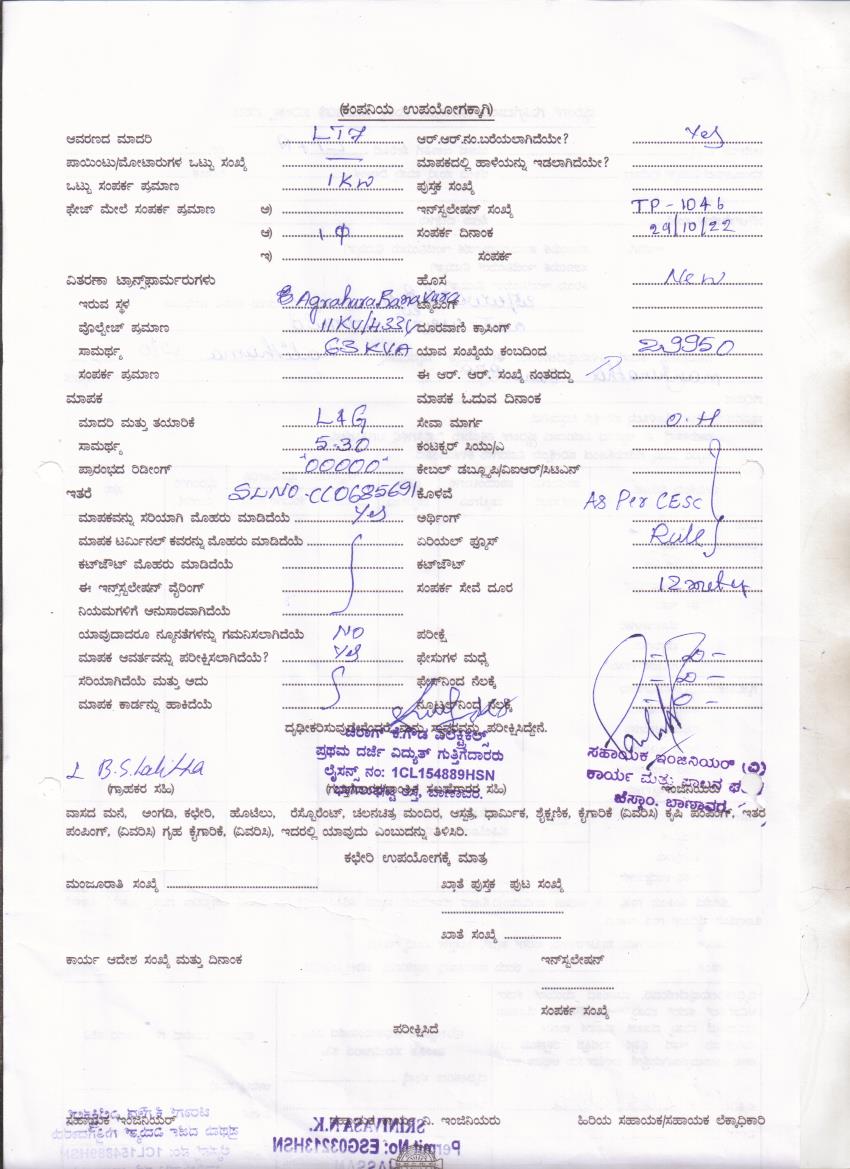 (ಕಂಪನಿಯ ಉಪಯೋಗಕ್ಕಾಗಿ)
ಆವರಣದ ಮಾದರಿ LT7 ಆರ್.ಆರ್.ನಂ.ಬರೆಯಲಾಗಿದೆಯೇ? Yes
ಪಾಯಿಂಟು/ಮೋಟಾರುಗಳ ಒಟ್ಟು ಸಂಖ್ಯೆ — ಮಾಪಕದಲ್ಲಿ ಹಾಳೆಯನ್ನು ಇಡಲಾಗಿದೆಯೇ?
ಒಟ್ಟು ಸಂಪರ್ಕ ಪ್ರಮಾಣ 1KW ಪುಸ್ತಕ ಸಂಖ್ಯೆ
ಫೇಜ್ ಮೇಲೆ ಸಂಪರ್ಕ ಪ್ರಮಾಣ ಅ) ಇನ್‌ಸ್ಟಲೇಷನ್ ಸಂಖ್ಯೆ TP-1046
ಆ) 1Φ ಸಂಪರ್ಕ ದಿನಾಂಕ 29/10/22
ಇ) ಸಂಪರ್ಕ
ವಿತರಣಾ ಟ್ರಾನ್ಸ್‌ಫಾರ್ಮರುಗಳು ಹೊಸ New
ಇರುವ ಸ್ಥಳ Agrahara Banavara ಟ್ಯಾಪಿಂಗ್
ವೊಲ್ಟೇಜ್ ಪ್ರಮಾಣ 11KV/433V ದೂರವಾಣಿ ಕ್ರಾಸಿಂಗ್
ಸಾಮರ್ಥ್ಯ 63 KVA ಯಾವ ಸಂಖ್ಯೆಯ ಕಂಬದಿಂದ 29950
ಸಂಪರ್ಕ ಪ್ರಮಾಣ ಈ ಆರ್. ಆರ್. ಸಂಖ್ಯೆ ನಂತರದ್ದು
ಮಾಪಕ ಮಾಪಕ ಓದುವ ದಿನಾಂಕ
ಮಾದರಿ ಮತ್ತು ತಯಾರಿಕೆ L&G ಸೇವಾ ಮಾರ್ಗ O.H
ಸಾಮರ್ಥ್ಯ 5-30 ಕಂಟಕ್ಟರ್ ಸಿಯು/ಎ
ಪ್ರಾರಂಭದ ರಿಡೀಂಗ್ "00000" ಕೇಬಲ್ ಡಬ್ಲ್ಯೂಪಿ/ವಿಐಆರ್/ಸಿಟಿಎನ್
ಇತರೆ SLNO-CC0685691 ಕೊಳವೆ As Per CESC
ಮಾಪಕವನ್ನು ಸರಿಯಾಗಿ ಮೊಹರು ಮಾಡಿದೆಯೆ Yes ಅರ್ಥಿಂಗ್
ಮಾಪಕ ಟರ್ಮಿನಲ್ ಕವರನ್ನು ಮೊಹರು ಮಾಡಿದೆಯೆ ಏರಿಯಲ್ ಫ್ಯೂಸ್ Rule
ಕಟ್‌ಜೌಟ್ ಮೊಹರು ಮಾಡಿದೆಯೆ ಕಟ್‌ಜೌಟ್
ಈ ಇನ್‌ಸ್ಟಲೇಷನ್ ವೈರಿಂಗ್ ಸಂಪರ್ಕ ಸೇವೆ ದೂರ 12 meter
ನಿಯಮಗಳಿಗೆ ಅನುಸಾರವಾಗಿದೆಯೆ
ಯಾವುದಾದರೂ ನ್ಯೂನತೆಗಳನ್ನು ಗಮನಿಸಲಾಗಿದೆಯೆ NO ಪರೀಕ್ಷೆ
ಮಾಪಕ ಆವರ್ತವನ್ನು ಪರೀಕ್ಷಿಸಲಾಗಿದೆಯೆ? Yes ಫೇಸುಗಳ ಮಧ್ಯೆ
ಸರಿಯಾಗಿದೆಯೆ ಮತ್ತು ಅದು ಫೇಸ್‌ನಿಂದ ನೆಲಕ್ಕೆ
ಮಾಪಕ ಕಾರ್ಡನ್ನು ಹಾಕಿದೆಯೆ ನ್ಯೂಟ್ರಲ್‌ನಿಂದ ನೆಲಕ್ಕೆ
ಚಿರಾಗ್ ಕೆ.ಗೌಡ ಎಲೆಕ್ಟ್ರಿಕಲ್ಸ್
ಪ್ರಥಮ ದರ್ಜೆ ವಿದ್ಯುತ್ ಗುತ್ತಿಗೆದಾರರು
ಲೈಸನ್ಸ್ ನಂ: 1CL154889HSN
B.S. Lalitha
ಸಹಾಯಕ ಇಂಜಿನಿಯರ್ (ವಿ)
ಕಾರ್ಯ ಮತ್ತು ಪಾಲನ
ಚೆಸ್ಕಾಂ. ಬಾಣಾವರ
(ಗ್ರಾಹಕರ ಸಹಿ)
ವಾಸದ ಮನೆ, ಅಂಗಡಿ, ಕಛೇರಿ, ಹೊಟೆಲು, ರೆಸ್ಟೊರೆಂಟ್, ಚಲನಚಿತ್ರ ಮಂದಿರ, ಆಸ್ಪತ್ರೆ, ಧಾರ್ಮಿಕ, ಶೈಕ್ಷಣಿಕ, ಕೈಗಾರಿಕೆ (ವಿವರಿಸಿ) ಕೃಷಿ ಪಂಪಿಂಗ್, ಇತರ
ಪಂಪಿಂಗ್, (ವಿವರಿಸಿ) ಗೃಹ ಕೈಗಾರಿಕೆ, (ವಿವರಿಸಿ), ಇದರಲ್ಲಿ ಯಾವುದು ಎಂಬುದನ್ನು ತಿಳಿಸಿರಿ.
ಕಛೇರಿ ಉಪಯೋಗಕ್ಕೆ ಮಾತ್ರ
ಮಂಜೂರಾತಿ ಸಂಖ್ಯೆ ಖಾತೆ ಪುಸ್ತಕ ಪುಟ ಸಂಖ್ಯೆ
ಖಾತೆ ಸಂಖ್ಯೆ
ಕಾರ್ಯ ಆದೇಶ ಸಂಖ್ಯೆ ಮತ್ತು ದಿನಾಂಕ ಇನ್‌ಸ್ಟಲೇಶನ್
ಸಂಪರ್ಕ ಸಂಖ್ಯೆ
ಪರೀಕ್ಷಿಸಿದೆ
ಸಹಾಯಕ ಇಂಜಿನಿಯರ್ ಇಂಜಿನಿಯರು ಹಿರಿಯ ಸಹಾಯಕ/ಸಹಾಯಕ ಲೆಕ್ಕಾಧಿಕಾರಿ
SRINIVASA N.K.
Permit No: ESG03213HSN